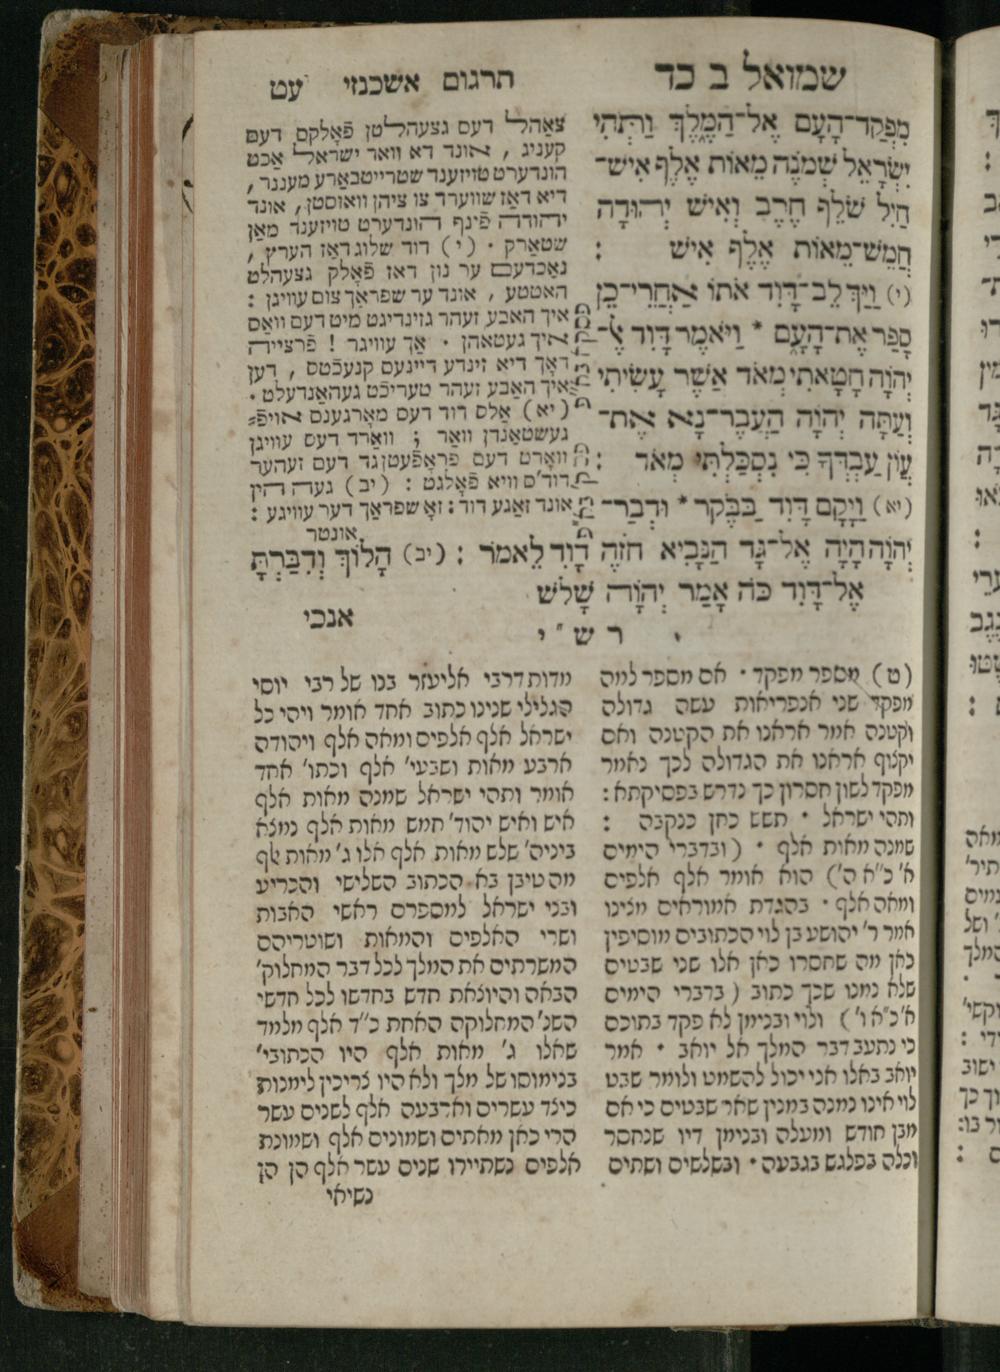 שמואל ב כד
תרגום אשכנזי עט
מִפְקַד־הָעָם אֶל־הַמֶּלֶךְ וַתְּהִי
יִשְׂרָאֵל שְׁמֹנֶה מֵאוֹת אֶלֶף אִישׁ־
חַיִל שֹׁלֵף חֶרֶב וְאִישׁ יְהוּדָה
חֲמֵשׁ־מֵאוֹת אֶלֶף אִישׁ :
(י) וַיַּךְ לֵב־דָּוִד אֹתוֹ אַחֲרֵי־כֵן
סָפַר אֶת־הָעָם * וַיֹּאמֶר דָּוִד אֶל־
יְהוָֹה חָטָאתִי מְאֹד אֲשֶׁר עָשִׂיתִי
וְעַתָּה יְהוָֹה הַעֲבֶר־נָא אֶת־
עֲוֹן עַבְדְּךָ כִּי נִסְכַּלְתִּי מְאֹד :
(יא) וַיָּקָם דָּוִד בַּבֹּקֶר * וּדְבַר־
יְהוָֹה הָיָה אֶל־גָּד הַנָּבִיא חֹזֵה דָוִד לֵאמֹר : (יב) הָלוֹךְ וְדִבַּרְתָּ
אֶל־דָּוִד כֹּה אָמַר יְהוָֹה שָׁלֹשׁ
אנכי
צאַהל דעס געצעהלטן פֿאָלקס דעם
קעניג , אונד דא וואר ישראל אַכט
הונדערט טויזענד שטרייטבאַרע מענער,
דיא דאַז שווערד צו ציהן וואוסטן , אונד
יהודה פֿינף הונדערט טויזענד מאַן
שטאַרק . (י) דוד שלוג דאַז הערץ ,
נאַכדעם ער נון דאז פֿאָלק געצעהלט
האטטע , אונד ער שפּראַך צום עוויגן :
איך האבע זעהר געזינדיגט מיט דעם וואַס
איך געטאהן . אַך עוויגר ! פֿרצייה
דאָך דיא זינדע דיינעס קנעכֿטס , דען
איך האַבע זעהר טעריכֿט געהאַנדעלט .
(יא) אַלס דוד דעס מאָרגענס אויפֿ=
געשטאַנדן וואר ; וואַרד דעס עוויגן
וואָרט דעם פּראָפֿעטן גד דעם זעהער
דוד'ס וויא פֿאָלגט : (יב) געה הין
אונד זאַגע דוד : זאָ שפּראַך דער עוויגע :
אונטר
רש״י
(ט) מספר מפקד . אם מספר למה
מפקד שני אנפריאות עשה גדולה
וקטנה אמר אראנו את הקטנה ואם
יקצוף אראנו את הגדולה לכך נאמר
מפקד לשון חסרון כך נדרש בפסיקתא :
ותהי ישראל . תשש כחן כנקבה :
שמנה מאות אלף . (ובדברי הימים
א' כ״א ה') הוא אומר אלף אלפים
ומאה אלף . בהגדת אמוראים מצינו
אמר ר' יהושע בן לוי הכתובים מוסיפין
כאן מה שחסרו כאן אלו שני שבטים
שלא נמנו שכך כתוב (בדברי הימים
א' כ״א ו') ולוי ובנימן לא פקד בתוכם
כי נתעב דבר המלך אל יואב . אמר
יואב באלו אני יכול להשמט ולומר שבט
לוי אינו נמנה במנין שאר שבטים כי אם
מבן חודש ומעלה ובנימן דיו שנחסר
וכלה בפלגש בגבעה . ובשלשים ושתים
מדות דרבי אליעזר בנו של רבי יוסי
הגלילי שנינו כתוב אחד אומר ויהי כל
ישראל אלף אלפים ומאה אלף ויהודה
ארבע מאות ושבעי' אלף וכתו' אחד
אומר ותהי ישראל שמנה מאות אלף
איש ואיש יהוד' חמש מאות אלף נמצא
ביניה' שלש מאות אלף אלו ג' מאות אלף
מה טיבן בא הכתוב השלישי והכריע
ובני ישראל למספרם ראשי האבות
ושרי האלפים והמאות ושוטריהם
המשרתים את המלך לכל דבר המחלוק'
הבאה והיוצאת חדש בחדשו לכל חדשי
השנ' המחלוקה האחת כ״ד אלף מלמד
שאלו ג' מאות אלף היו הכתובי'
בנימוסו של מלך ולא היו צריכין לימנות
כיצד עשרים וארבעה אלף לשנים עשר
הרי כאן מאתים ושמונים אלף ושמונת
אלפים נשתיירו שנים עשר אלף הן הן
נשיאי